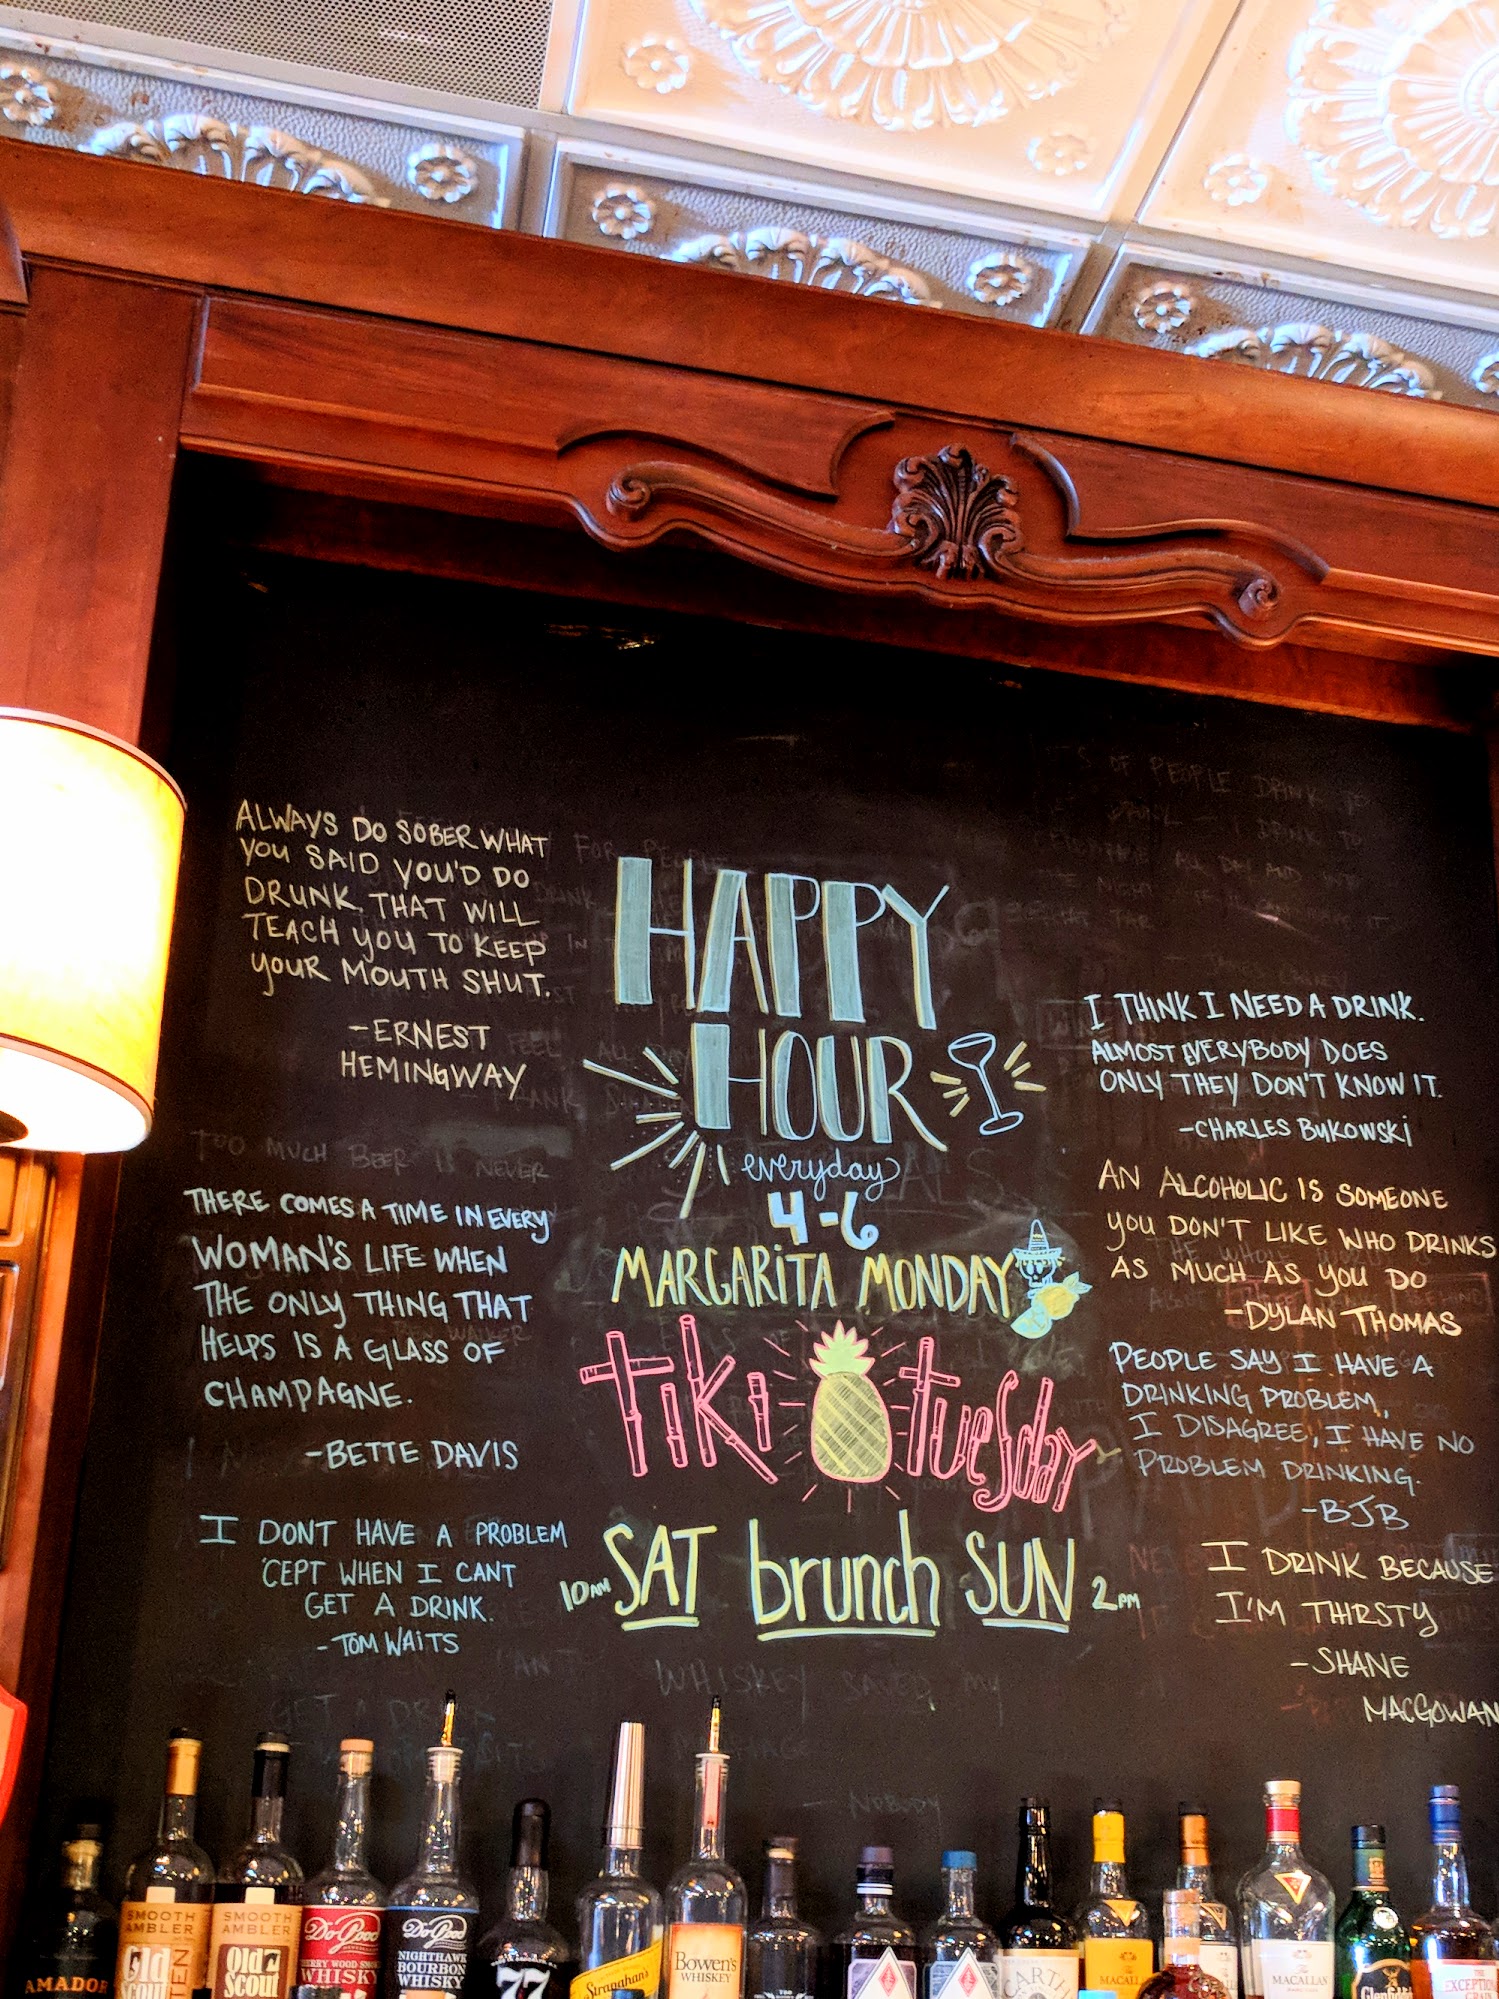 ALWAYS DO SOBER WHAT
YOU SAID YOU'D DO
DRUNK, THAT WILL
TEACH YOU TO KEEP
YOUR MOUTH SHUT.
-ERNEST
HEMINGWAY
TOO MUCH BEER IS NEVER
THERE COMES A TIME IN EVERY
WOMAN'S LIFE WHEN
THE ONLY THING THAT
HELPS IS A GLASS OF
CHAMPAGNE.
-BETTE DAVIS
I DONT HAVE A PROBLEM
'CEPT WHEN I CANT
GET A DRINK.
-TOM WAITS
HAPPY
HOUR
everyday
4-6
MARGARITA MONDAY
TIKI TUESday
10AM SAT brunch SUN 2PM
WHISKEY SAVED MY
- NOBODY
S OF PEOPLE DRINK TO
I THINK I NEED A DRINK.
ALMOST EVERYBODY DOES
ONLY THEY DON'T KNOW IT.
-CHARLES BUKOWSKI
AN ALCOHOLIC IS SOMEONE
YOU DON'T LIKE WHO DRINKS
AS MUCH AS YOU DO
-DYLAN THOMAS
PEOPLE SAY I HAVE A
DRINKING PROBLEM,
I DISAGREE, I HAVE NO
PROBLEM DRINKING.
-BJB
I DRINK BECAUSE
I'M THIRSTY
-SHANE
MACGOWAN
AMADOR
SMOOTH
AMBLER
Old
Scout
TEN
SMOOTH
AMBLER
Old
Scout
Do Good
CHERRY WOOD SMOKED
WHISKEY
Do Good
NIGHTHAWK
BOURBON
WHISKEY
77
Stranahan's
Bowen's
WHISKEY
MACALLAN
MACALLAN
Glenfiddich
THE
EXCEPTIONAL
GRAIN